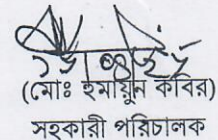 (মোঃ হুমায়ুন কবির)
সহকারী পরিচালক